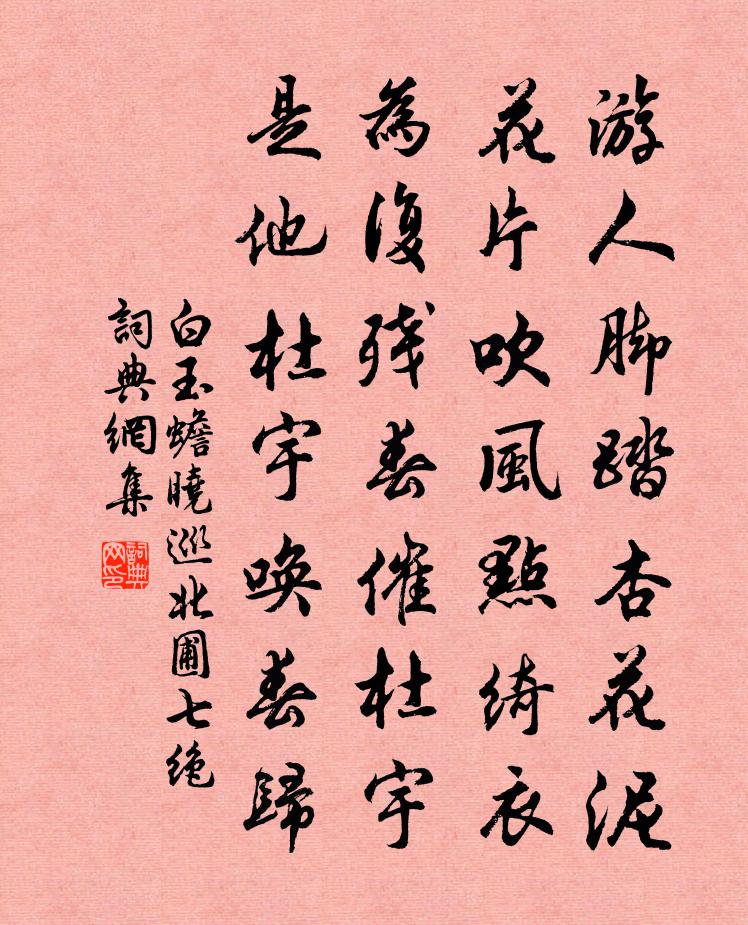 游人脚踏杏花泥
花片吹風點綺衣
為復残春催杜宇
是他杜宇喚春歸
白玉蟾曉巡北圃七绝
詞典網集
詞典网印